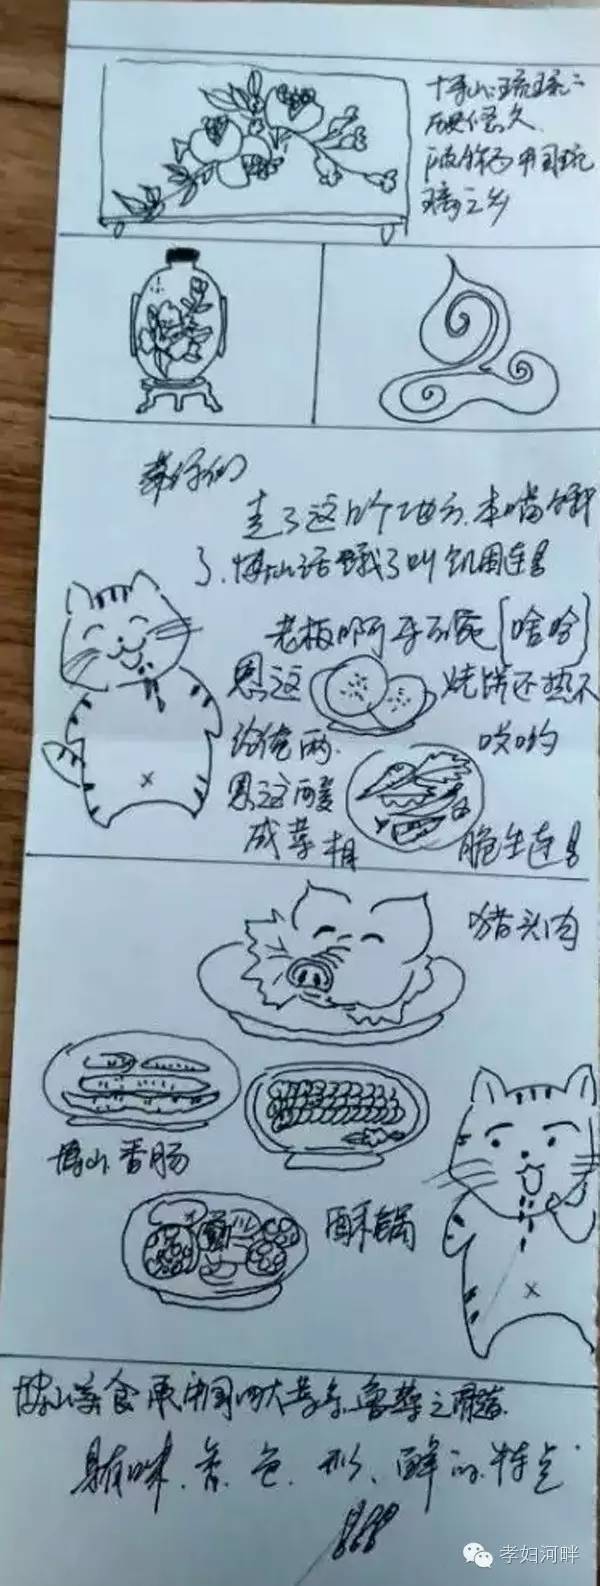 博山琉璃
历史悠久
被称为中国琉
璃之乡
带你们
走了这几个地方.本喵饿
了.博山话饿了叫饥困连
老板啊 [啥哈]
恩这 烧饼还热不
给俺两. 哎哟
恩这
咸菜 脆生连
猪头肉
博山香肠
酥锅
博山美食 中国四大菜系.鲁菜之
具有味.香.色.形.鲜的.特点
孝妇河畔